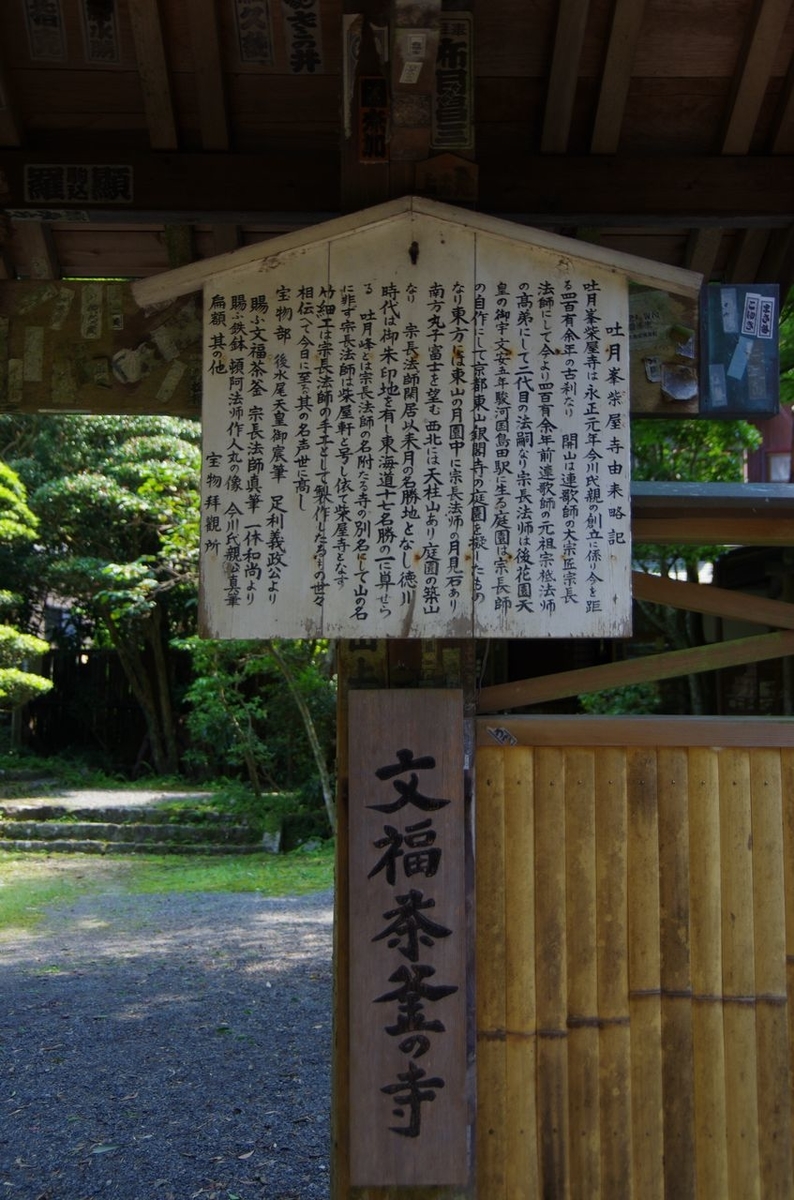 吐月峯柴屋寺由来略記
吐月峯柴屋寺は永正元年今川氏親の創立に係り今を距
る四百有余年の古刹なり 開山は連歌師の大宗匠宗長
法師にして今より四百有余年前連歌師の元祖宗祗法師
の高弟にして二代目の法嗣なり宗長法師は後花園天
皇の御宇文安五年駿河国島田駅に生る庭園は宗長師
の自作にして京都東山銀閣寺の庭園を擬したもの
なり東方には東山の月園中に宗長法師の月見石あり
南方丸子富士を望む西北には天柱山あり庭園の築山
なり 宗長法師閑居以来月の名勝地となし徳川
時代は御朱印地を有し東海道十七名勝の一に算せら
る 吐月峰とは宗長法師の名附たる寺の別名にして山の名
に非ず宗長法師は柴屋軒と号し依て柴屋寺となす
竹細工は宗長法師の手工として製作したるもの世々
相伝へて今日に至る其の名声世に高し
宝物部 後水尾天皇御宸筆 足利義政公より
賜ふ文福茶釜 宗長法師真筆 一休和尚より
賜ふ鉄鉢 頓阿法師作人丸の像 今川氏親公真筆
扁額 其の他 宝物拝観所
文福茶釜の寺